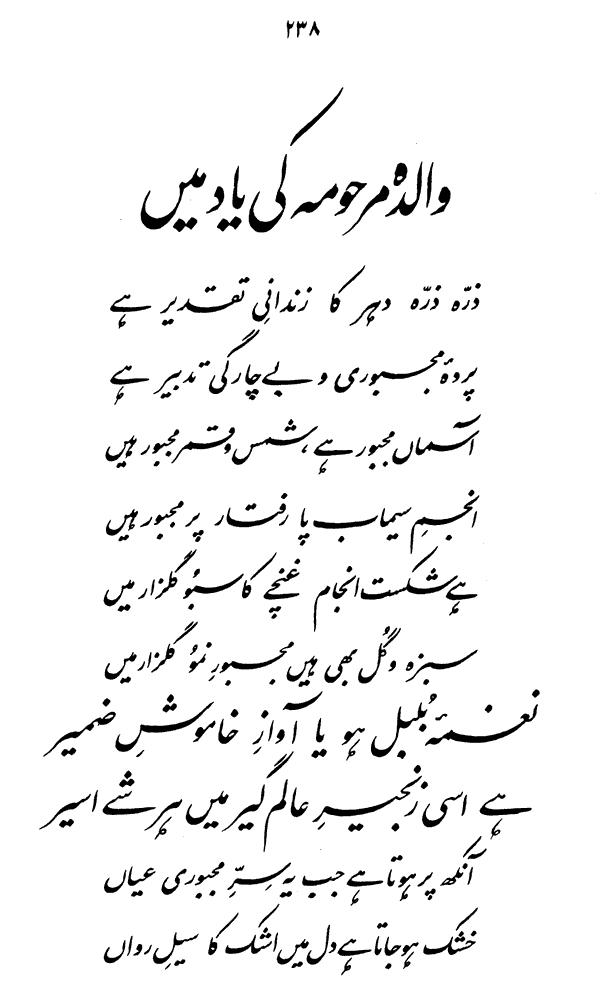 ۲۳۸
والدہ مرحومہ کی یاد میں
ذرّہ ذرّہ دہر کا زندانیِ تقدیر ہے
پردۂ مجبوری و بے چارگی تدبیر ہے
آسماں مجبور ہے، شمس و قمر مجبور ہیں
انجمِ سیماب پا رفتار پر مجبور ہیں
ہے شکست انجام غنچے کا سبُو گلزار میں
سبزہ و گُل بھی ہیں مجبورِ نمُو گلزار میں
نغمۂ بُلبل ہو یا آوازِ خاموشِ ضمیر
ہے اسی زنجیرِ عالم گیر میں ہر شے اسیر
آنکھ پر ہوتا ہے جب یہ سِرِّ مجبوری عیاں
خشک ہو جاتا ہے دل میں اشک کا سیلِ رواں